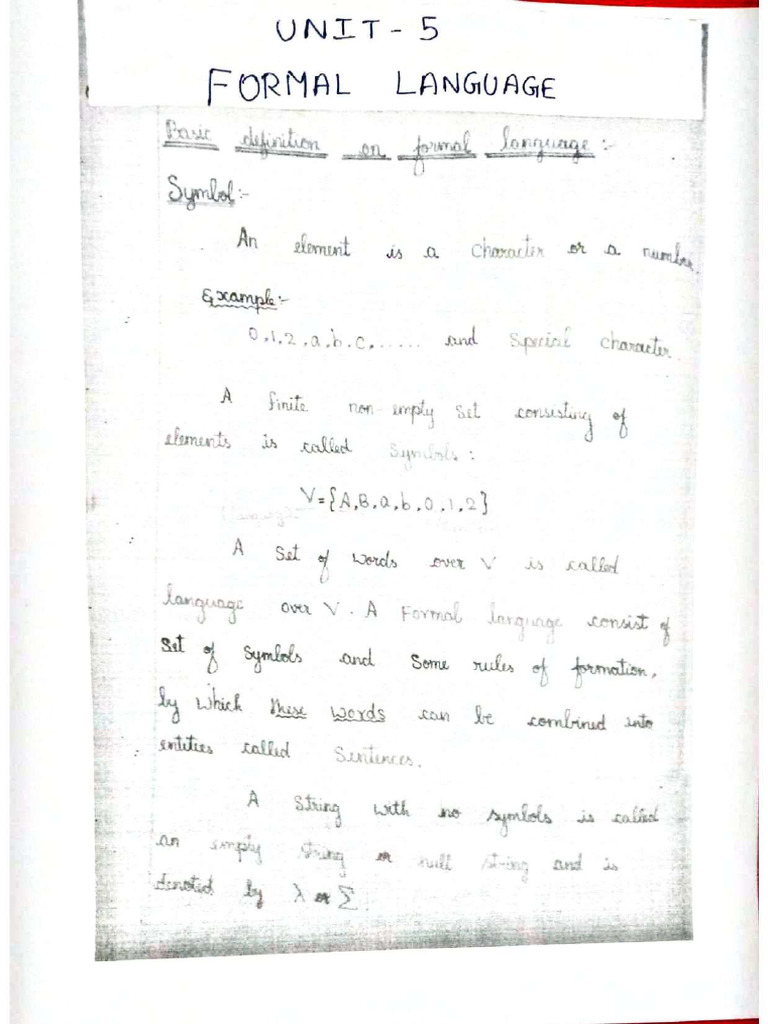 UNIT - 5
FORMAL LANGUAGE
Basic definition on formal language:-
Symbol:-
An element is a character or a number.
Example:-
0,1,2,a,b,c,...... and Special character.
A finite non-empty set consisting of
elements is called Symbols:
V={A,B,a,b,0,1,2}
A Set of words over V is called
language over V. A Formal language consist of
Set of Symbols and Some rules of formation,
by which these words can be combined into
entities called Sentences.
A String with no symbols is called
an empty string or null string and is
denoted by λ or Σ